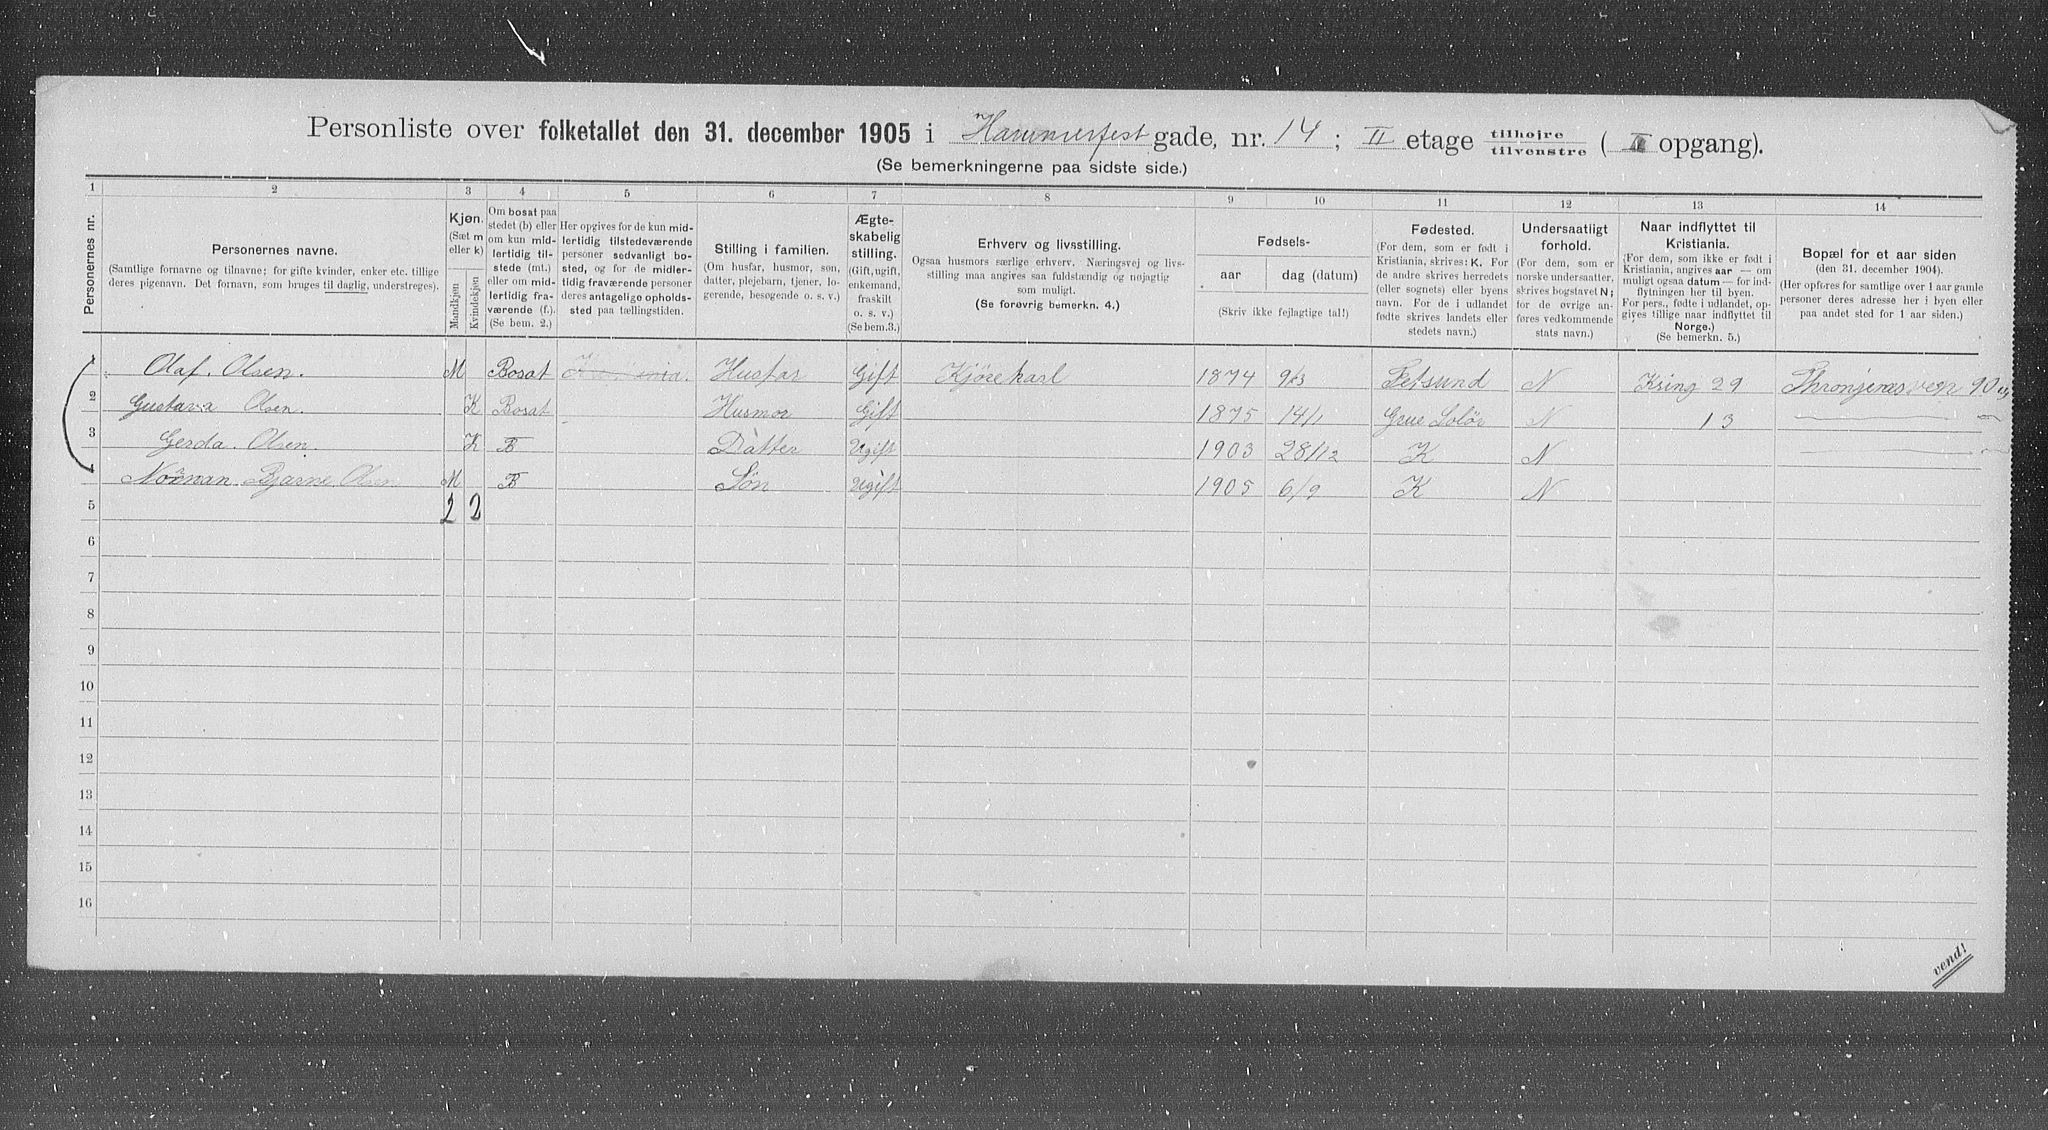 Personliste over folketallet den 31. december 1905 i Hammerfest gade, nr. 14; II etage tilhøjre tilvenstre ( opgang).
(Se bemerkningerne paa sidste side.)
1 2 3 4 5 6 7 8 9 10 11 12 13 14
Personernes nr.
Personernes navne.
(Samtlige fornavne og tilnavne; for gifte kvinder, enker etc. tillige
deres pigenavn. Det fornavn, som bruges til daglig, understreges).
Kjøn.
(Sæt m
eller k)
Mandkjøn
Kvindekjøn
Om bosat paa
stedet (b) eller
om kun mid-
lertidig til-
stede (mt.)
eller om mid-
lertidig fra-
værende (f.).
(Se bem. 2.)
Her opgives for de kun mid-
lertidig tilstedeværende
personer sedvanligt bo-
sted, og for de midler-
tidig fraværende personer
deres antagelige opholds-
sted paa tællingstiden.
Stilling i familien.
(Om husfar, husmor, søn,
datter, plejebarn, tjener, lo-
gerende, besøgende o. s. v.)
Ægte-
skabelig
stilling.
(Gift, ugift,
enkemand,
fraskilt
o. s. v.)
(Se bem. 3.)
Erhverv og livsstilling.
Ogsaa husmors særlige erhverv. Næringsvej og livs-
stilling maa angives saa fuldstændig og nøjagtig
som muligt.
(Se forøvrig bemerkn. 4.)
Fødsels-
aar
dag (datum)
(Skriv ikke fejlagtige tal!)
Fødested.
(For dem, som er født i
Kristiania, skrives: K. For
de andre skrives herredets
(eller sognets) eller byens
navn. For de i udlandet
fødte skrives landets eller
stedets navn.)
Undersaatligt
forhold.
(For dem, som er
norske undersaatter,
skrives bogstavet N;
for de øvrige an-
føres vedkommende
stats navn.)
Naar indflyttet til
Kristiania.
(For dem, som ikke er født i
Kristiania, angives aar — om
muligt ogsaa datum — for ind-
flytningen her til byen.
For pers., fødte i udlandet, op-
gives tillige naar indflyttet til
Norge.)
(Se bemerkn. 5.)
Bopæl for et aar siden
(den 31. december 1904).
(Her opføres for samtlige over 1 aar gamle
personer deres adresse her i byen eller
paa andet sted for 1 aar siden.)
1 Olaf. Olsen. M Bosat Husfar Gift Kjørekarl 1874 9/3 Fetsund N 29 90
2 Gustava Olsen. K Bosat Husmor Gift 1875 14/1 Grue Solør N 13
3 Gerda. Olsen. K B Datter Ugift 1903 28/12 K N
4 Norman Bjarne Olsen M B Søn Ugift 1905 6/9 K N
5 2 2
6
7
8
9
10
11
12
13
14
15
16
vend!